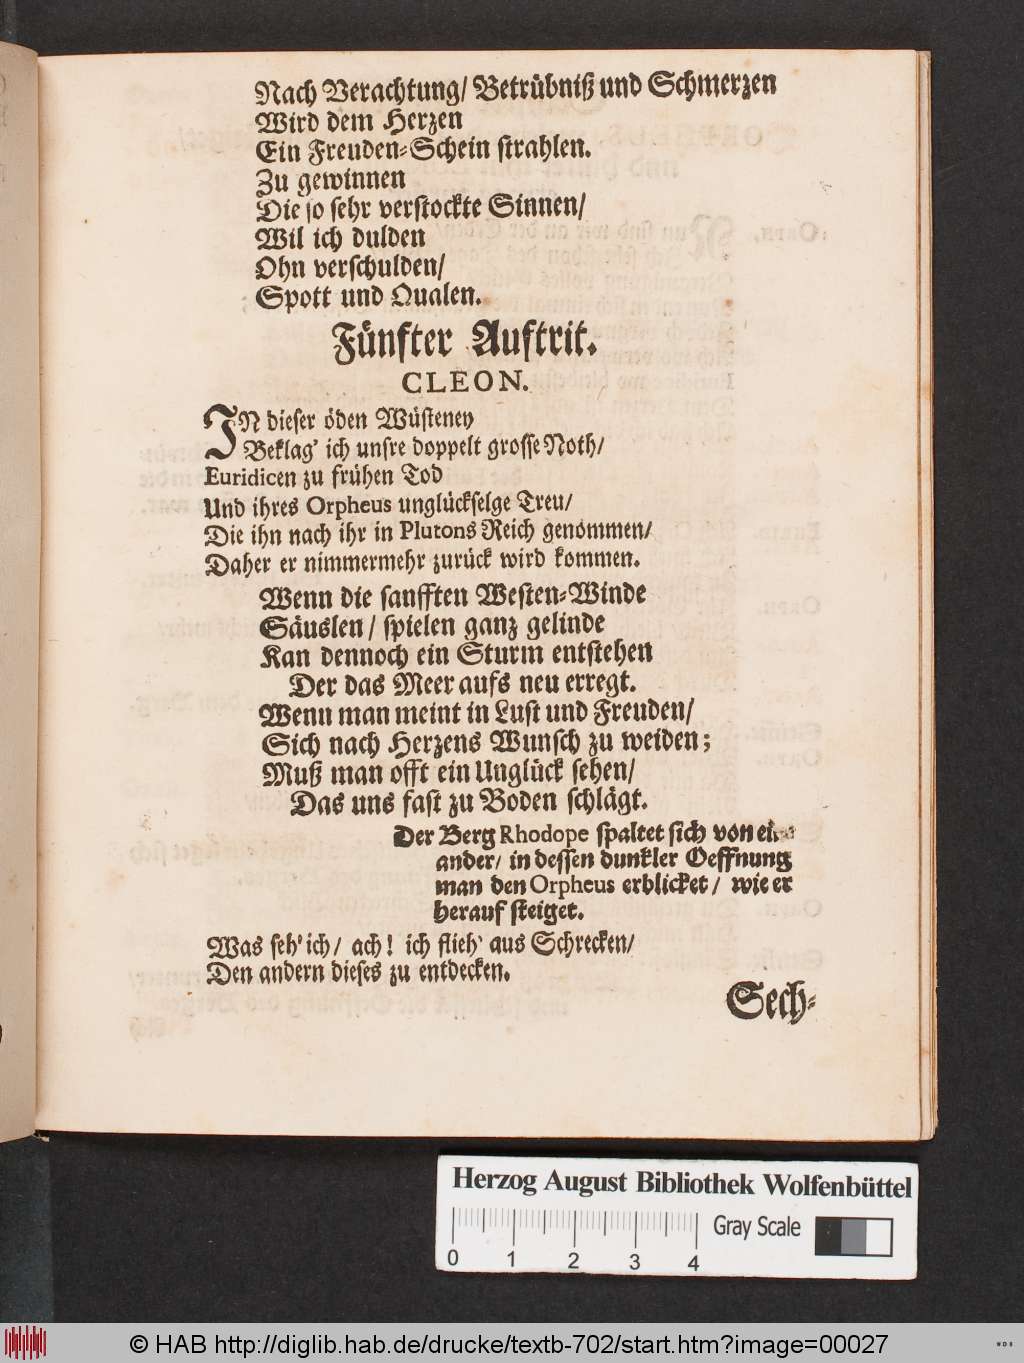 Nach Verachtung/ Betrübniß und Schmerzen
Wird dem Herzen
Ein Freuden-Schein strahlen.
Zu gewinnen
Die so sehr verstockte Sinnen/
Wil ich dulden
Ohn verschulden/
Spott und Qualen.
Fünfter Auftrit.
CLEON.
IN dieser öden Wüsteney
Beklag' ich unsre doppelt grosse Noth/
Euridicen zu frühen Tod
Und ihres Orpheus unglückselge Treu/
Die ihn nach ihr in Plutons Reich genommen/
Daher er nimmermehr zurück wird kommen.
Wenn die sanfften Westen-Winde
Säuslen/ spielen ganz gelinde
Kan dennoch ein Sturm entstehen
Der das Meer aufs neu erregt.
Wenn man meint in Lust und Freuden/
Sich nach Herzens Wunsch zu weiden;
Muß man offt ein Unglück sehen/
Das uns fast zu Boden schlägt.
Der Berg Rhodope spaltet sich von ein
ander/ in dessen dunkler Oeffnung
man den Orpheus erblicket/ wie er
herauf steiget.
Was seh' ich/ ach! ich flieh' aus Schrecken/
Den andern dieses zu entdecken.
Sech-
Herzog August Bibliothek Wolfenbüttel
0 1 2 3 4 Gray Scale
© HAB http://diglib.hab.de/drucke/textb-702/start.htm?image=00027